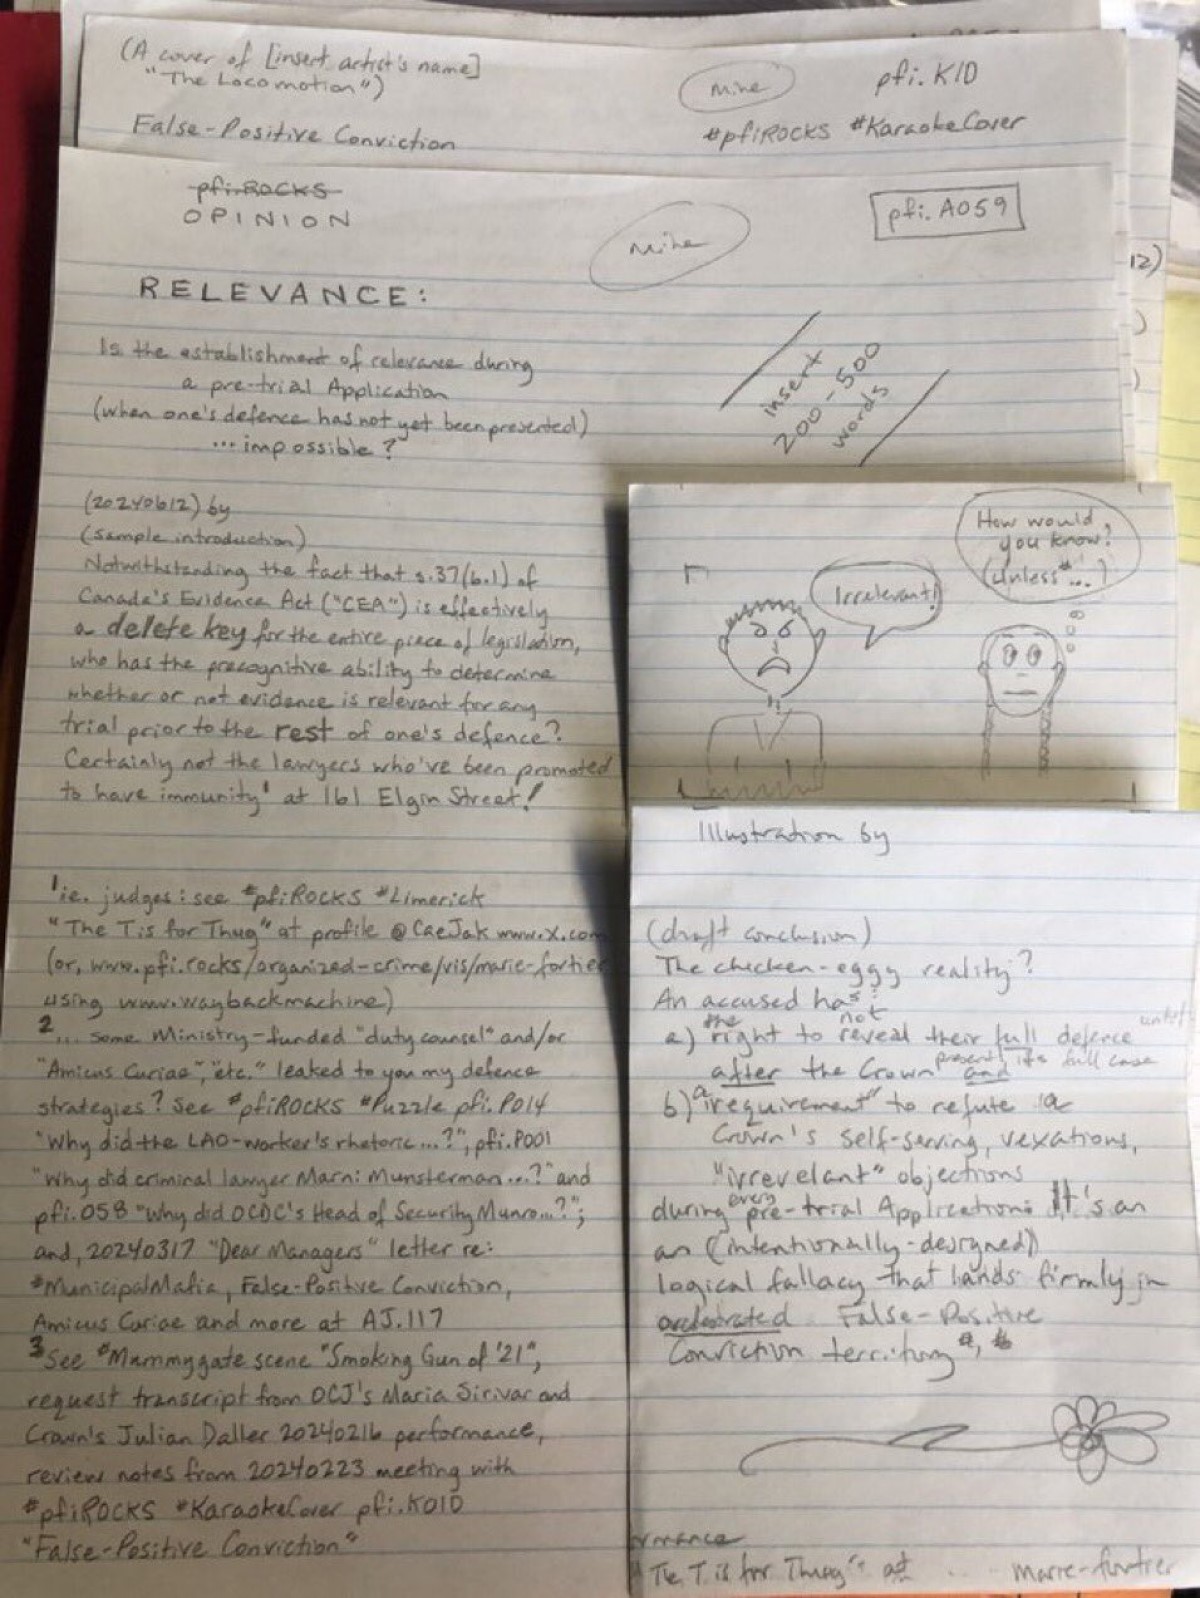 (A cover of [insert artist's name]
"The Locomotion")
Mine
pfi.K1D
False-Positive Conviction
#pfiROCKS #KaraokeCover
pfi.ROCKS
OPINION
Mine
pfi.A059
12)
RELEVANCE:
Is the establishment of relevance during
a pre-trial Application
(when one's defence has not yet been presented)
...impossible?
insert
200-500
words
(20240612) by
(sample introduction)
Notwithstanding the fact that s.37(6.1) of
Canada's Evidence Act ("CEA") is effectively
a delete key for the entire piece of legislation,
who has the precognitive ability to determine
whether or not evidence is relevant for any
trial prior to the rest of one's defence?
Certainly not the lawyers who've been promoted
to have immunity¹ at 161 Elgin Street!
Irrelevant!
How would
you know?
(unless ...)
Illustration by
¹ie. judges: see #pfiROCKS #Limerick
"The T is for Thug" at profile @CaeJak www.x.com
(or, www.pfi.rocks/organized-crime/vis/marie-fortier
using www.waybackmachine)
2... some Ministry-funded "duty counsel" and/or
"Amicus Curiae", "etc." leaked to you my defence
strategies? See #pfiROCKS #Puzzle pfi.P014
"Why did the LAO-worker's rhetoric...?", pfi.P001
"Why did criminal lawyer Marni Munsterman...?" and
pfi.058 "Why did OCDC's Head of Security Munro...?";
and, 20240317 "Dear Managers" letter re:
#MunicipalMafia, False-Positive Conviction,
Amicus Curiae and more at AJ.117
3See #Mummygate scene "Smoking Gun of '21",
request transcript from OCJ's Maria Sirivar and
Crown's Julian Daller 20240216 performance,
review notes from 20240223 meeting with
#pfiROCKS #KaraokeCover pfi.K01D
"False-Positive Conviction"
(draft conclusion)
The chicken-eggy reality?
An accused has:
a) the right to not reveal their full defence until
after the Crown presents its full case and
b) a "requirement" to refute a
Crown's self-serving, vexatious,
"irrevelant" objections
during every pre-trial Application: It's an
an (intentionally-designed)
logical fallacy that lands firmly in
orchestrated False-Positive
Conviction territory
rmance
"The T is for Thug" at ... marie-fortier